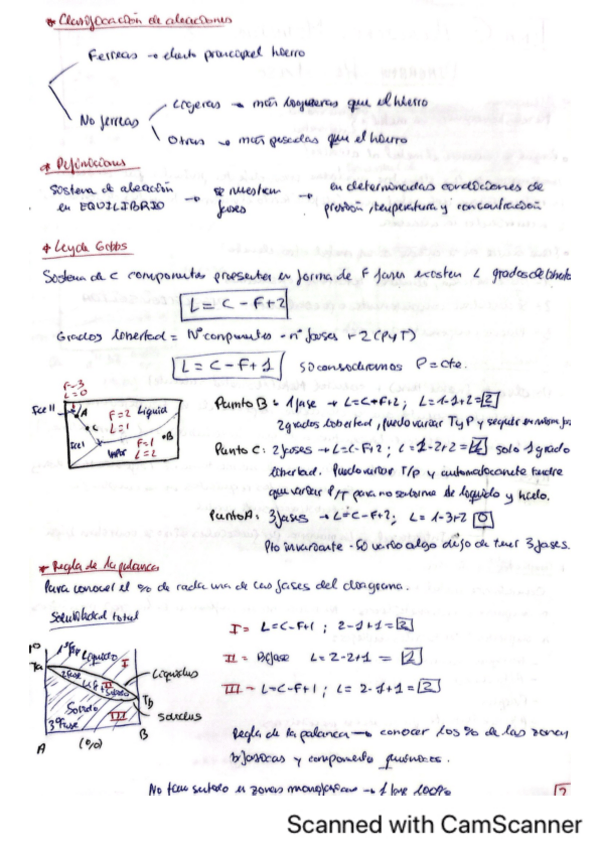 * Clasificación de aleaciones
Ferreas → elemento principal hierro
No ferreas
Ligeras → más ligeras que el hierro
Otras → más pesadas que el hierro
* Definiciones
Sistema de aleación en EQUILIBRIO → se muestran fases → en determinadas condiciones de presión, temperatura y concentración
* Ley de Gibbs
Sistema de C componentes presentes en forma de F fases existen L grados de libertad
L = C - F + 2
Grados libertad = Nº componentes - nº fases + 2 (P y T)
L = C - F + 1 si consideramos P = cte.
F=3
L=0
A
F=2
L=1
Liquido
C
F=1
L=2
B
Vapor
Punto B: 1 fase → L=C-F+2; L=1-1+2=2
2 grados libertad, puedo variar T y P y seguir en misma fase
Punto C: 2 fases → L=C-F+2; L=1-2+2=1 solo 1 grado
libertad. Puedo variar T/P y automáticamente tendré
que variar P/T para no salirme de líquido y hielo.
Punto A: 3 fases → L=C-F+2; L=1-3+2 0
Pto invariante - Si varío algo dejo de tener 3 fases.
* Regla de la palanca
Para conocer el % de cada una de las fases del diagrama.
Solubilidad total
Ta
Liquido
I
Liquidus
II
Tb
Solido
III
Solidus
A
(%)
B
I = L=C-F+1; 2-1+1=2
II = Bifase L=2-2+1 = 1
III - L=C-F+1; L=2-1+1=2
Regla de la palanca → conocer los % de las zonas
bifásicas y componentes químicos.
No tiene sentido en zonas monofásicas → 1 fase 100%
Scanned with CamScanner